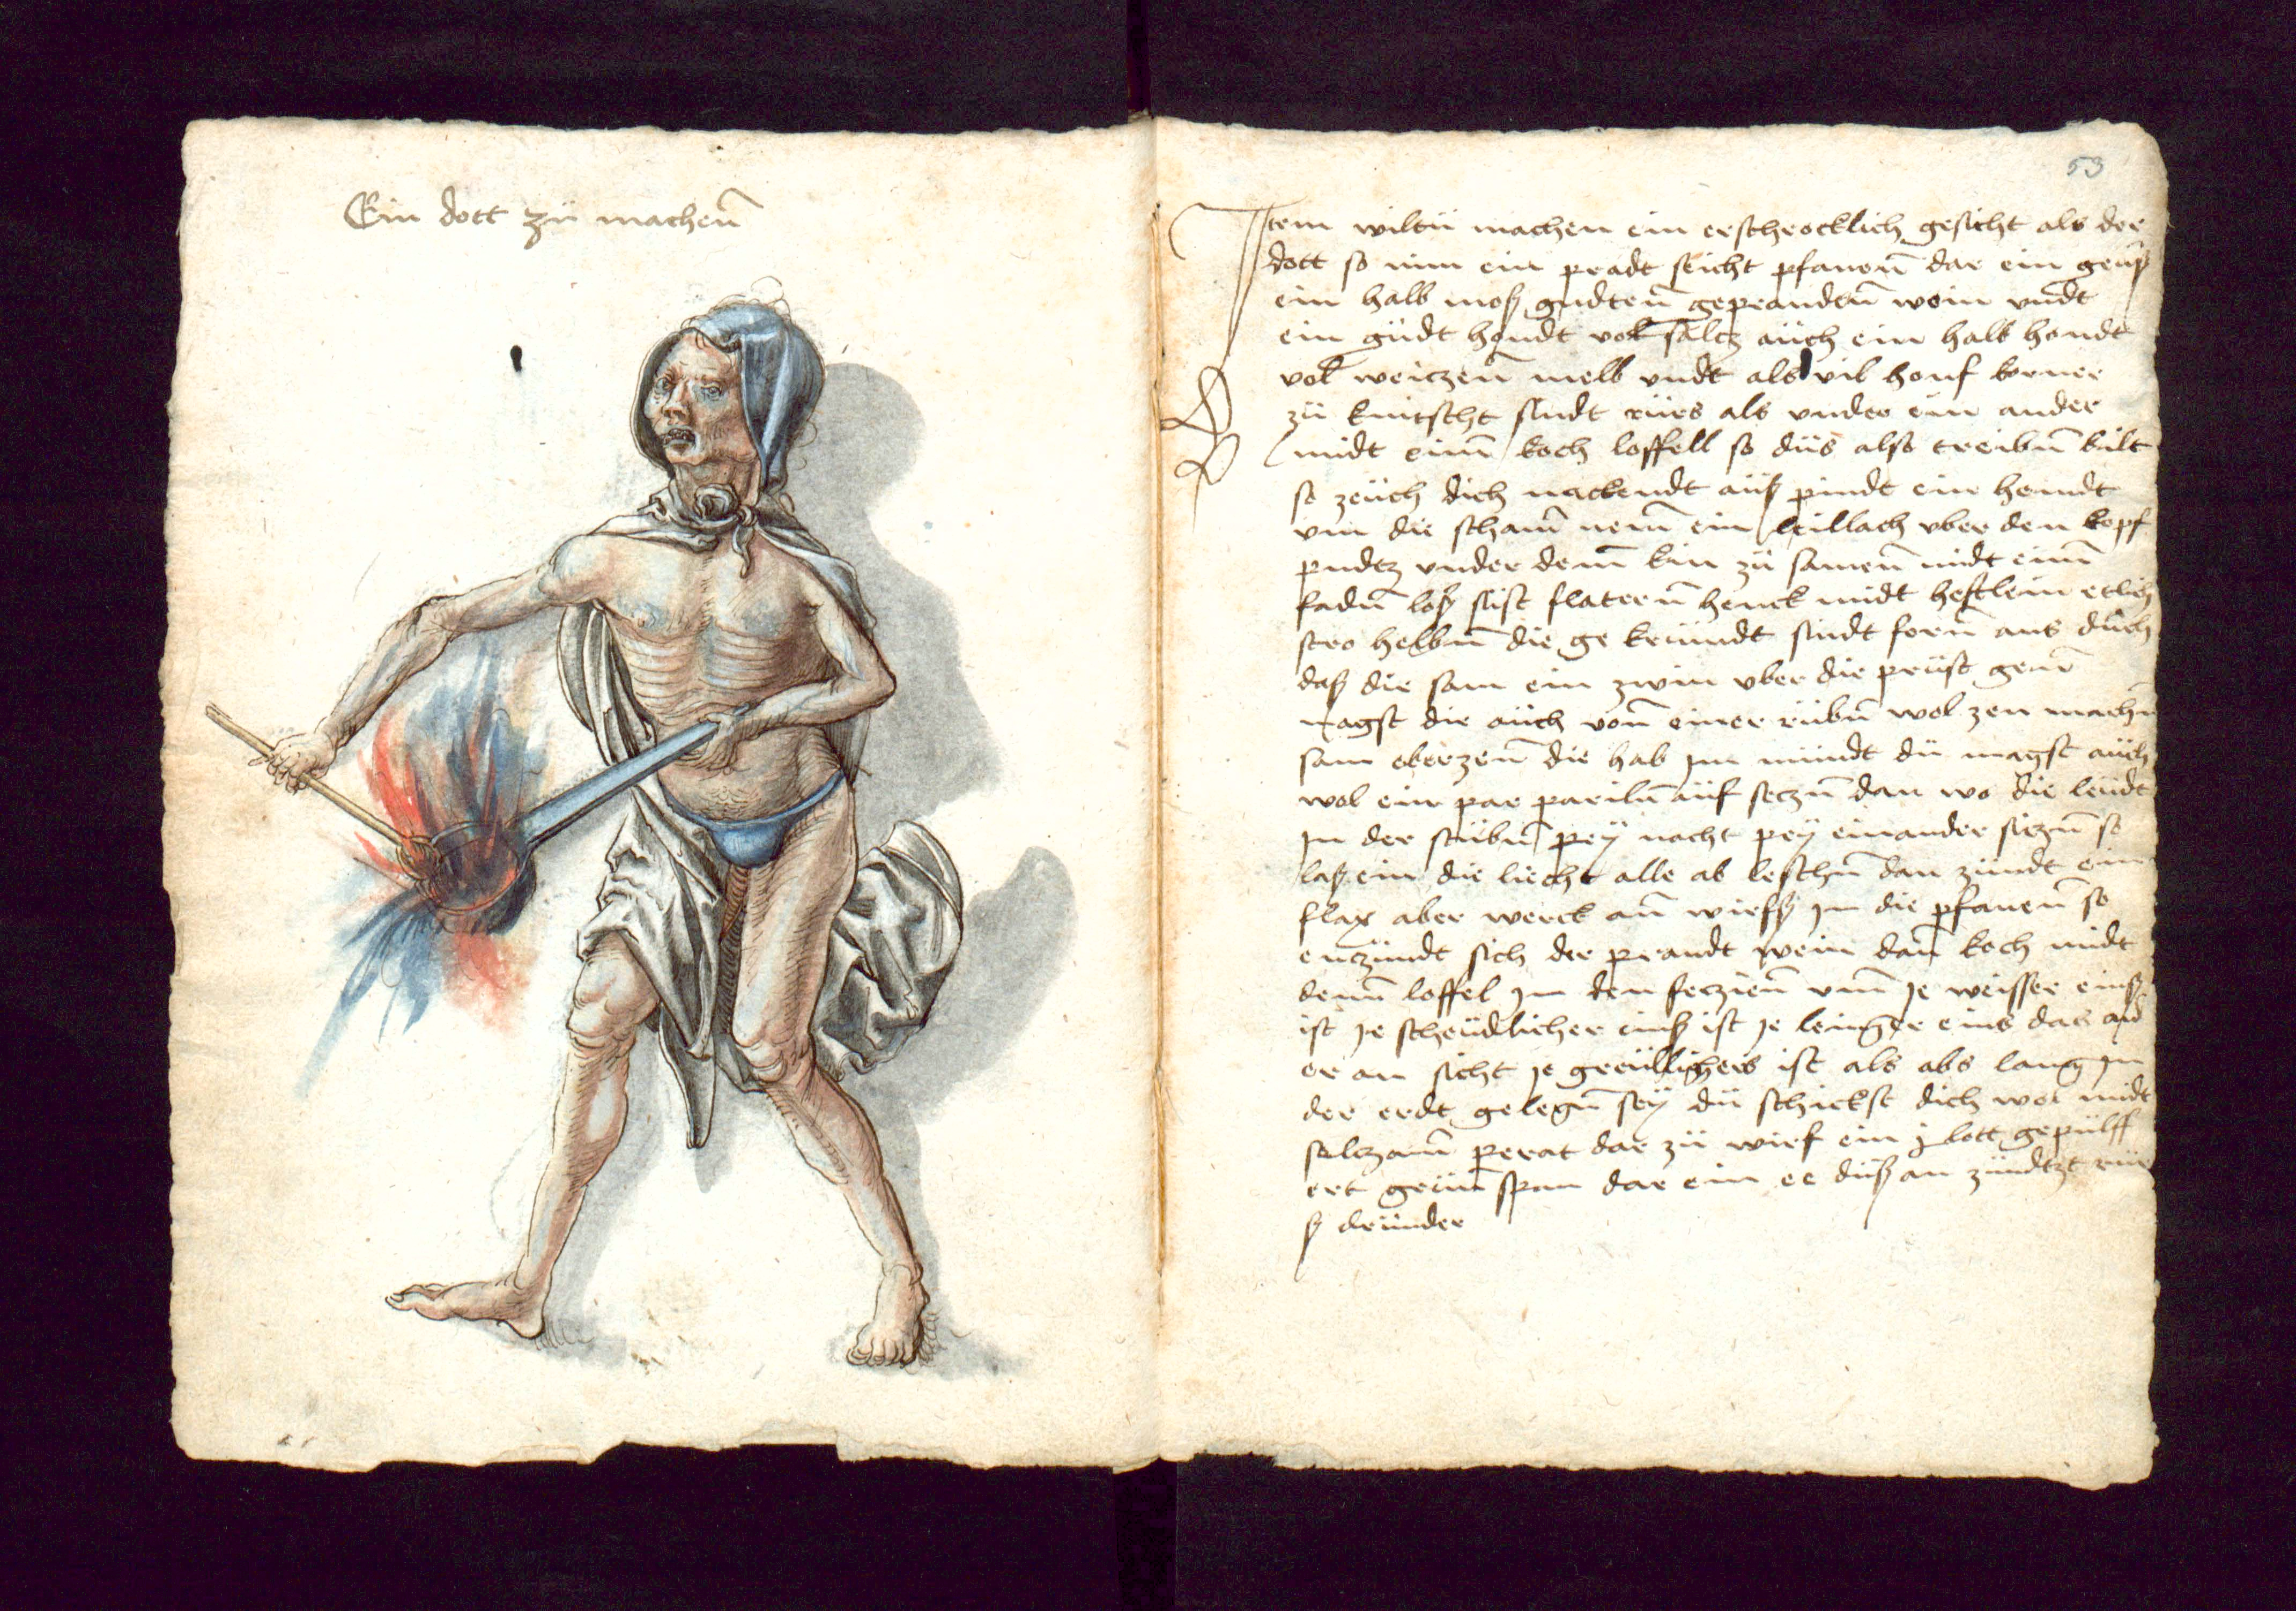 Ein dott zü machenn
53
Item wiltü machen ein erschrocklich gesicht als der
dott so nim ein pradt seicht pfanenn dar ein geüß
ein halb moß gudtenn geprandtnn wein vndt
ein güdt handt vol salcz aüch ein halb handt
vol weiczenn melb vndt als vil honf korner
zü knitscht sindt rürs als vnder ein ander
midt einm koch loffell so düs also treibnn bilt
so zeüch dich nackendt aüß pindt ein hemdt
vm die scham nem ein leillach vber den kopf
pindtz vnder dem kin zü samenn midt einm
fadnn loß sust flaternn henck midt heftlein etlich
stro helbnn die ge krümdt sindt forn ans düch
daß die sam ein zwin vber die prüst genn
magst die aüch vonn einer rübnn wol zen machn
sam eberzenn die hab im mündt dü magst aüch
wol ein par parilnn aüf seczn dan wo die leüdt
in der stübnn pey nacht pey einander siczn so
laß ein die liecht alle ab leschnn dan zündt ein
flax aber werck ann wirfß in die pfanenn so
enczündt sich der prandt wein dan koch midt
denn loffel in den feczienn vnn je weisser einß
ist je scheüdlicher einß ist je lenger eins das and
er an sicht je greülichers ist als abs lang in
der erdt gelegnn sey dü schickst dich wol midt
salczann perat dar zü wirf ein j lott gepülff
ert grünspan dar ein ee düß an zündtzt rür
ß dründer